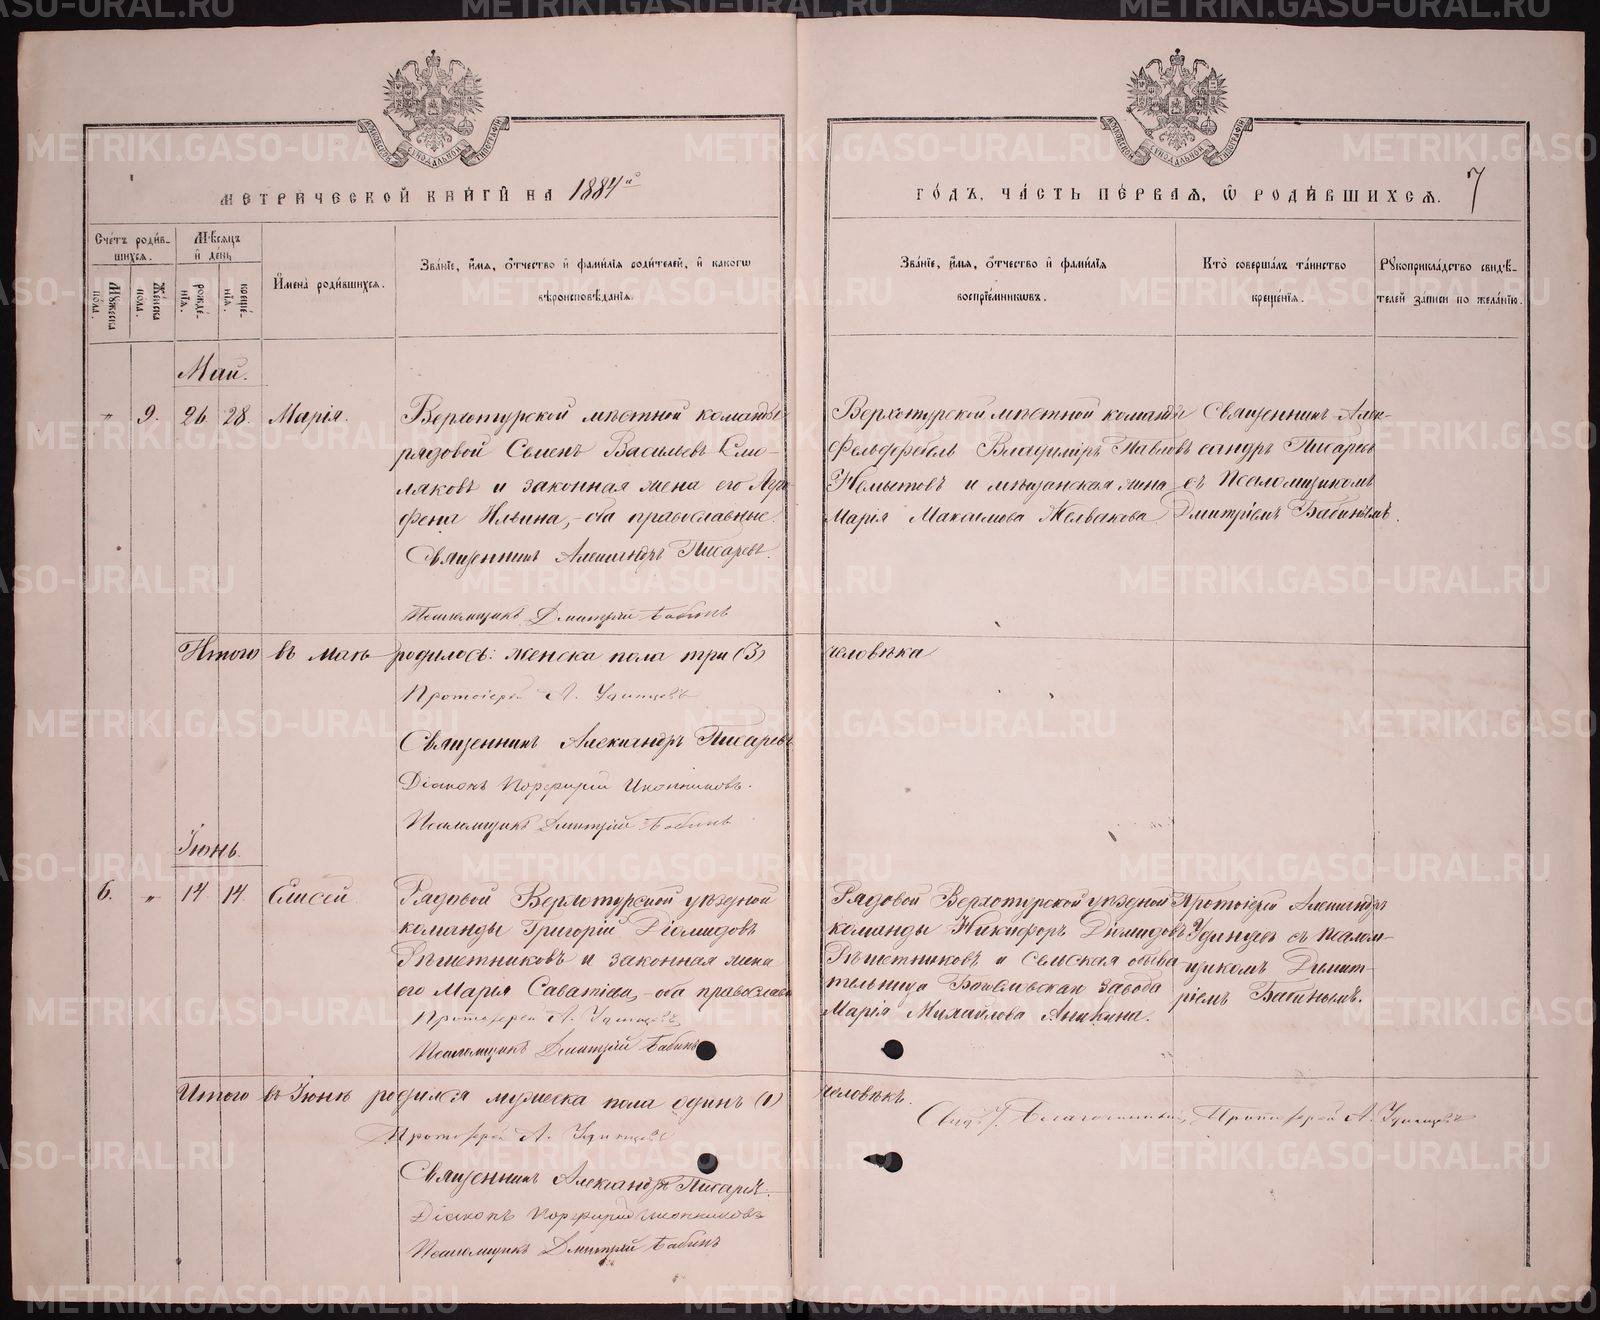 МЕТРИЧЕСКОЙ КНИГИ НА 1884й
ГОДЪ, ЧАСТЬ ПЕРВАЯ, Ѿ РОДИВШИХСЯ. 7
Счетъ родив-
шихся.
Мѣсяцъ
и день
Мужеска
пола.
Женска
пола.
рожде-
нія.
креще-
нія.
Имена родившихся.
Званіе, имя, отчество и фамилія родителей, и какогѡ
вѣроисповѣданія.
Званіе, имя, отчество и фамилія
воспріемниковъ.
Кто совершалъ таинство
крещенія.
Рукоприкладство свидѣ-
телей записи по желанію.
Май.
" 9. 26 28. Марія.
Верхотурской мѣстной команды
рядовой Семенъ Васильевъ Смо-
ляковъ и законная жена его Агра
фена Ильина, - оба православные.
Священникъ Александръ Писаревъ.
Псаломщикъ Дмитрій Бабинъ
Верхотурской мѣстной команды
Фельдфебель Владиміръ Павловъ
Немытовъ и мѣщанская жена
Марія Максимова Желвакова.
Священникъ Алек-
сандръ Писаревъ
съ Псаломщикомъ
Дмитріемъ Бабинымъ.
Итого въ Маѣ родилось: женска пола три (3) человѣка
Протоіерей А. Удинцевъ
Священникъ Александръ Писаревъ
Діаконъ Порфирій Иконниковъ.
Псаломщикъ Дмитрій Бабинъ
Іюнь.
6. " 14 14. Елисей.
Рядовой Верхотурской уѣздной
команды Григорій Діомидовъ
Рѣшетниковъ и законная жена
его Марья Саватіева, - оба православн
Протоіерей А. Удинцевъ
Псаломщикъ Дмитрій Бабинъ
Рядовой Верхотурской уѣздной
команды Никифоръ Діомидовъ
Рѣшетниковъ и сельская обыва
тельница завода
Марія Михайлова Аникина.
Протоіерей Александръ
Удинцевъ съ псалом-
щикомъ Димит-
ріемъ Бабинымъ.
Итого въ Іюнѣ родился мужеска пола одинъ (1) человѣкъ.
Протоіерей А. Удинцевъ
Священникъ Александръ Писаревъ.
Діаконъ Порфирій Иконниковъ
Псаломщикъ Дмитрій Бабинъ
Благочинный, Протоіерей А. Удинцевъ
METRIKI.GASO-URAL.RU